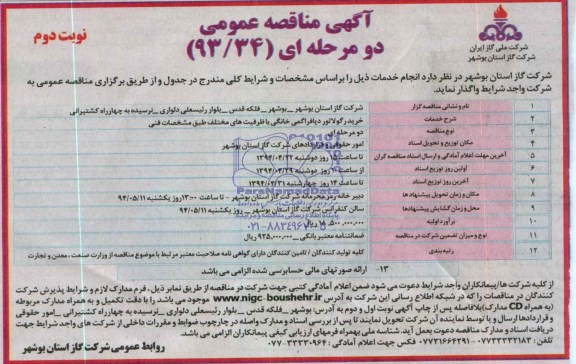 آگهی مناقصه عمومی
دو مرحله ای (۹۳/۳۴)
نوبت دوم
شرکت ملی گاز ایران
شرکت گاز استان بوشهر
شرکت گاز استان بوشهر در نظر دارد انجام خدمات ذیل را براساس مشخصات و شرایط کلی مندرج در جدول و از طریق برگزاری مناقصه عمومی به
شرکت واجد شرایط واگذار نماید.
۱ نام و نشانی مناقصه گزار شرکت گاز استان بوشهر _ بوشهر _ فلکه قدس _ بلوار رئیسعلی دلواری _ نرسیده به چهارراه کشتیرانی
۲ شرح خدمات خرید رگولاتور دیافراگمی خانگی با ظرفیت های مختلف طبق مشخصات فنی
۳ نوع مناقصه دو مرحله ای
۴ مکان توزیع و تحویل اسناد امور حقوقی و قراردادهای شرکت گاز استان بوشهر
۵ آخرین مهلت اعلام آمادگی و ارسال اسناد مناقصه گران تا ساعت ۱۵ روز دوشنبه ۱۳۹۴/۰۴/۲۲
۶ اولین روز توزیع اسناد از ساعت ۱۰ روز دوشنبه ۱۳۹۴/۰۴/۲۹
۷ آخرین روز توزیع اسناد تا ساعت ۱۴ روز چهارشنبه ۱۳۹۴/۰۴/۳۱
۸ مکان و زمان تحویل پیشنهادها دبیر خانه رمز محرمانه شرکت گاز استان بوشهر - تا ساعت ۱۳:۰۰ روز یکشنبه ۹۴/۰۵/۱۱
۹ محل و زمان گشایش پیشنهادها سالن کنفرانس شرکت گاز استان بوشهر _ روز یکشنبه ۹۴/۰۵/۱۱
۱۰ برآورد اولیه ۱۸,۵۰۰,۰۰۰,۰۰۰ ریال
۱۱ نوع و میزان تضمین شرکت در مناقصه ضمانتنامه معتبر بانکی _ ۹۲۵,۰۰۰,۰۰۰ ریال
۱۲ رتبه بندی کلیه تولید کنندگان / تامین کنندگان دارای گواهی نامه صلاحیت معتبر مرتبط با موضوع مناقصه از وزارت صنعت، معدن و تجارت
۱۳- ارائه صورتهای مالی حسابرسی شده الزامی می باشد
از کلیه شرکت ها/پیمانکاران واجد شرایط دعوت می شود ضمن اعلام آمادگی کتبی جهت شرکت در مناقصه از طریق نمابر ذیل ، فرم مدارک لازم و شرایط پذیرش شرکت
کنندگان در مناقصات را که در شبکه اطلاع رسانی این شرکت به آدرس www.nigc-boushehr.ir موجود می باشد را با دقت تکمیل و به همراه مدارک مربوطه
(به همراه CD مدارک) بلافاصله پس از چاپ آگهی نوبت اول و دوم به آدرس: بوشهر _ فلکه قدس _ بلوار رئیسعلی دلواری _ نرسیده به چهارراه کشتیرانی _ امور حقوقی
و قراردادها ارسال و یا توسط نماینده آن شرکت تحویل نمایند تا پس از بررسی اسناد و مدارک واصله در چارچوب ضوابط و مقررات داخلی از شرکت های واجد شرایط جهت
دریافت اسناد و مدارک مناقصه دعوت بعمل آید. شناسه ملی بهمراه فرمهای ارزیابی کیفی پیمانکاران الزامی می باشد.
روابط عمومی شرکت گاز استان بوشهر
ParsNamadData
۰۲۱-۸۸۳۴۹۶۷۰-۵